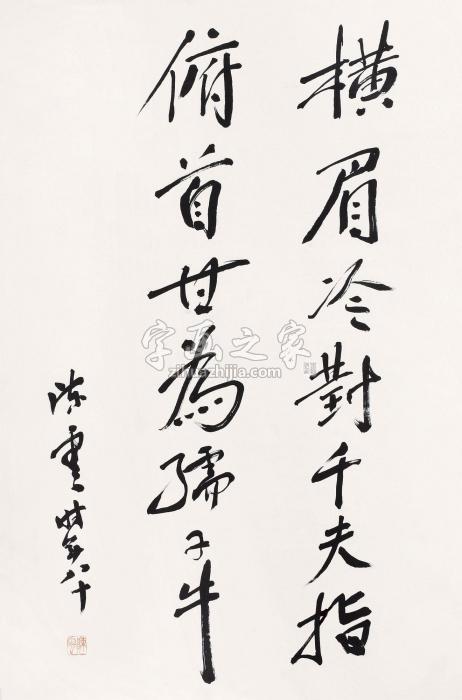 橫眉冷對千夫指
俯首甘為孺子牛
陳雲时年八十
字画之家
zihuazhijia.com